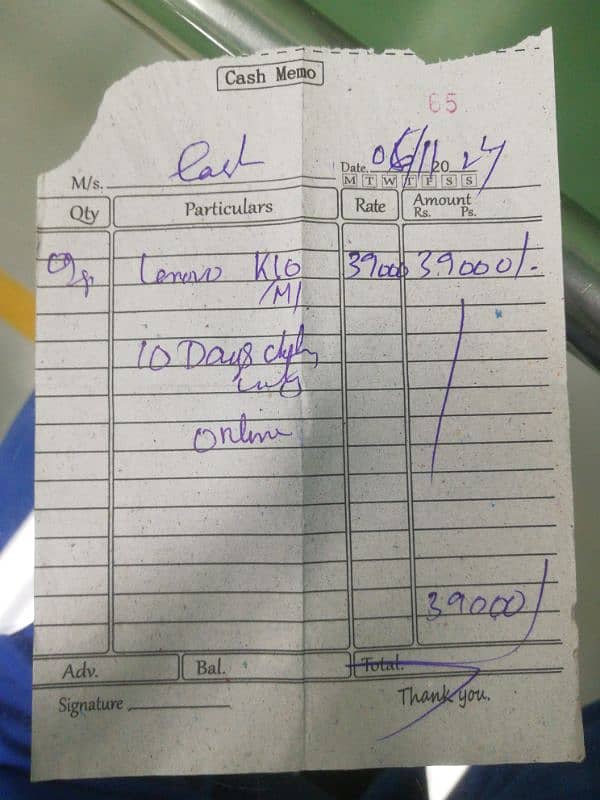 Cash Memo
65
M/s. Cash
Date. 06/11 2024
M T W T F S S
Qty Particulars Rate Amount
Rs. Ps.
Lenovo K10 39000 39000/-
/M1
10 Days
Online
39000/
Adv. Bal. Total.
Signature
Thank you.